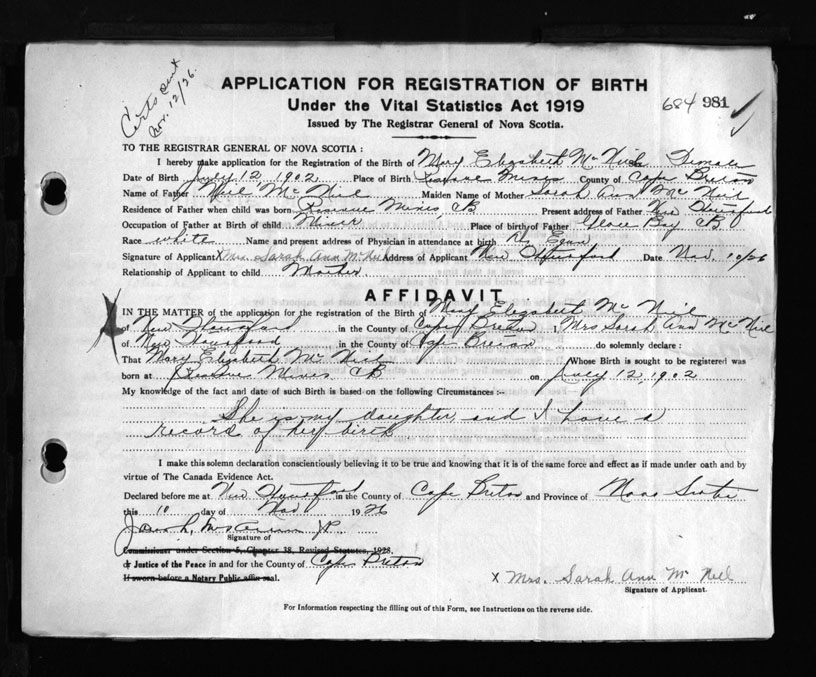 Certs sent
Nov. 12/26.
APPLICATION FOR REGISTRATION OF BIRTH
Under the Vital Statistics Act 1919
684 981
Issued by The Registrar General of Nova Scotia.
TO THE REGISTRAR GENERAL OF NOVA SCOTIA :
I hereby make application for the Registration of the Birth of Mary Elizabeth Mc Neil Female
Date of Birth July 12, 1902 Place of Birth Reserve Mines County of Cape Breton
Name of Father Neil Mc Neil Maiden Name of Mother Sarah Ann Mc Neil
Residence of Father when child was born Reserve Mines, CB Present address of Father New
Occupation of Father at Birth of child Miner Place of birth of Father Glace Bay CB
Race white Name and present address of Physician in attendance at birth
Signature of Applicant X Mrs. Sarah Ann Mc Neil Address of Applicant New Date Nov. 10/26
Relationship of Applicant to child Mother
AFFIDAVIT
IN THE MATTER of the application for the registration of the Birth of Mary Elizabeth Mc Neil
of New in the County of Cape Breton I, Mrs Sarah Ann Mc Neil
of New in the County of Cape Breton do solemnly declare :
That Mary Elizabeth Mc Neil Whose Birth is sought to be registered was
born at Reserve Mines CB on July 12, 1902
My knowledge of the fact and date of such Birth is based on the following Circumstances :—
She is my daughter and I have a
record of her birth
I make this solemn declaration conscientiously believing it to be true and knowing that it is of the same force and effect as if made under oath and by
virtue of The Canada Evidence Act.
Declared before me at New in the County of Cape Breton and Province of Nova Scotia
this 10 day of Nov 1926
J.P.
Signature of
Commissioner under Section 5, Chapter 38, Revised Statutes, 1923.
or Justice of the Peace in and for the County of Cape Breton
If sworn before a Notary Public affix seal.
X Mrs. Sarah Ann Mc Neil
Signature of Applicant.
For Information respecting the filling out of this Form, see Instructions on the reverse side.